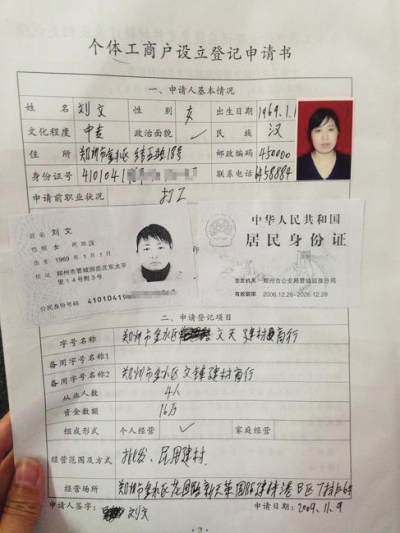 个体工商户设立登记申请书
一、申请人基本情况
姓名 刘文 性别 女 出生日期 1969.1.1
文化程度 中专 政治面貌 民族 汉
住所 郑州市金水区 18号 邮政编码 450000
身份证号 41010419 联系电话
申请前职业状况 打工
姓名 刘文
性别 女 民族 汉
出生 1969年1月1日
住址 郑州市管城回族区东太平
里14号附3号
公民身份号码 41010419
中华人民共和国
居民身份证
签发机关 郑州市公安局管城回族分局
有效期限 2006.12.28-2026.12.28
二、申请登记项目
字号名称 郑州市金水区文天建材商行
备用字号名称1
备用字号名称2 郑州市金水区文锋建材商行
从业人数 4人
资金数额 16万
组成形式 个人经营 ✓ 家庭经营
经营范围及方式 批发、民用建材
经营场所 郑州市金水区花园路新天荣国际建材港B区
申请人签字： 刘文 申请日期：2009.11.9